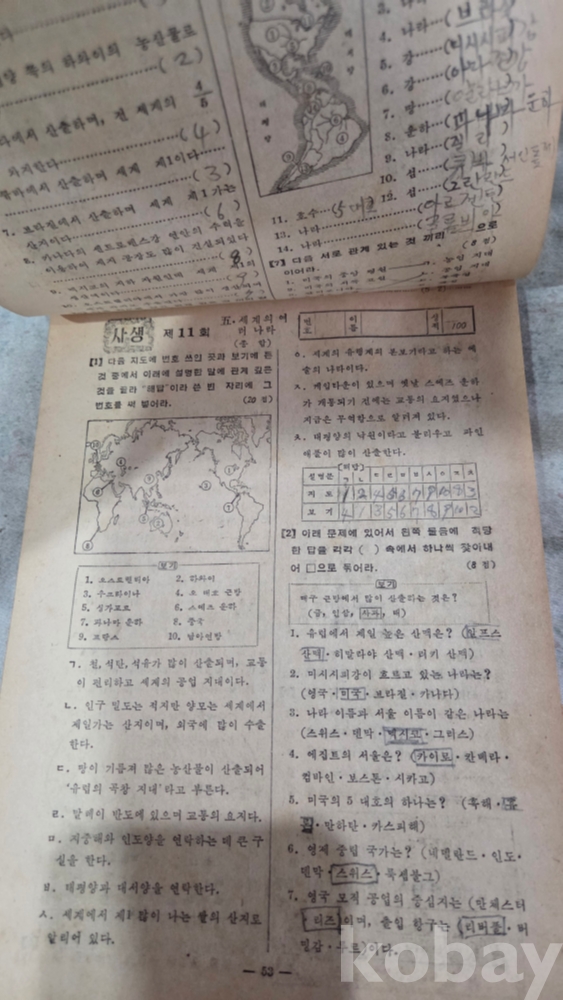 쪽의 하와이의 농산물로
(2)
에서 산출하며, 전 세계의 4/5
차지한다 (4)
에서 산출하며 세계 제1이다
(3)
7. 브라질에서 산출하며 세계 제1가는
산지이다 (6)
8. 카나다의 센트로렌스강 연안의 수력을
이용하여 제지 공장도 많이 건설되었다
4. 나라 (브라질)
5. 강 (미시시피강)
6. 강
7. 땅
8. 운하 (파나마 운하)
9. 나라 (칠리)
10. 섬 (쿠바)
12. 섬
11. 호수 (5대호)
13. 나라
14. 나라
[7] 다음 서로 관계 있는 것 끼리 으로
이어라. (8점)
사생 제11회
五. 세계의 여
러 나라
(종합)
번호
이름
성적
100
[1] 다음 지도에 번호 쓰인 곳과 보기에 든
것 중에서 아래에 설명한 말에 관계 깊은
것을 골라 "해답"이라 쓴 빈 자리에 그
번호를 써 넣어라. (20점)
보기
1. 오스트렐리아 2. 하와이
3. 우크라이나 4. 오 대호 근방
5. 싱가포르 6. 스에즈 운하
7. 파나마 운하 8. 중국
9. 프랑스 10. 남아연방
ㄱ. 철, 석탄, 석유가 많이 산출되며, 교통
이 편리하고 세계의 공업 지대이다.
ㄴ. 인구 밀도는 적지만 양모는 세계에서
제일가는 산지이며, 외국에 많이 수출
한다.
ㄷ. 땅이 기름져 많은 농산물이 산출되어
'유럽의 곡창 지대'라고 부른다.
ㄹ. 말레이 반도에 있으며 교통의 요지다.
ㅁ. 지중해와 인도양을 연락하는 데 큰 구
실을 한다.
ㅂ. 태평양과 대서양을 연락한다.
ㅅ. 세계에서 제1 많이 나는 쌀의 산지로
알려져 있다.
ㅇ. 세계의 유행계의 본보기라고 하는 예
술의 나라이다.
ㅈ. 케입타운이 있으며 옛날 스에즈 운하
가 개통되기 전에는 교통의 요지였으나
지금은 무역항으로 알려져 있다.
ㅊ. 태평양의 낙원이라고 불리우고 파인
애플이 많이 산출한다.
(해답)
설명문 ㄱ ㄴ ㄷ ㄹ ㅁ ㅂ ㅅ ㅇ ㅈ ㅊ
지도
보기
[2] 아래 문제에 있어서 왼쪽 물음에 적당
한 답을 각각 ( ) 속에서 하나씩 찾아내
어 □으로 둘러라. (8점)
보기
대구 근방에서 많이 산출하는 것은?
(금, 인삼, 사과, 배)
1. 유럽에서 제일 높은 산맥은? (알프스
산맥·히말라야 산맥·터키 산맥)
2. 미시시피강이 흐르고 있는 나라는?
(영국·미국·브라질·카나다)
3. 나라 이름과 서울 이름이 같은 나라는
(스위스·덴막·멕시코·그리스)
4. 에집트의 서울은? (카이로·칸베라·
컴바인·보스톤·시카고)
5. 미국의 5 대호의 하나는? (흑해·
·만하탄·카스피해)
6. 영세 중립 국가는? (네델란드·인도·
덴막·스위스·룩셈불그)
7. 영국 모직 공업의 중심지는 (만체스터
리즈)이며, 출입 항구는 (리버풀·버
밍감· )이다.
— 53 —
kobay